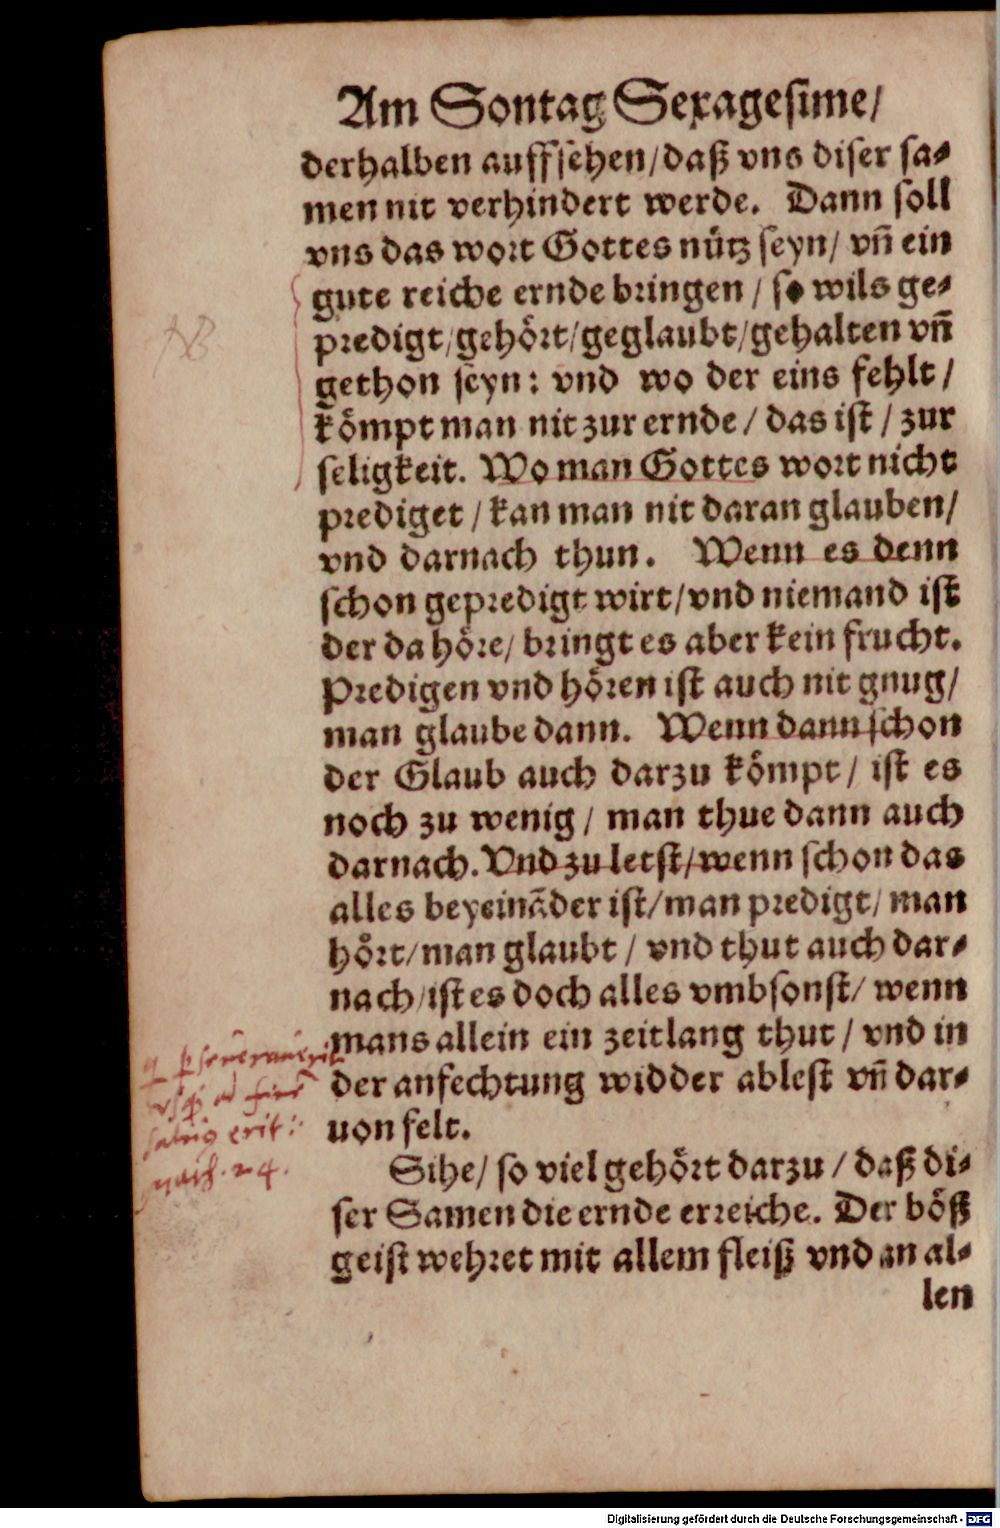 Am Sontag Sexagesime/
derhalben auffsehen/daß vns diser sa⸗
men nit verhindert werde. Dann soll
vns das wort Gottes nütz seyn/ vñ ein
gute reiche ernde bringen / so wils ge⸗
predigt/gehört/geglaubt/gehalten vñ
gethon seyn: vnd wo der eins fehlt /
kömpt man nit zur ernde / das ist / zur
seligkeit. Wo man Gottes wort nicht
prediget / kan man nit daran glauben/
vnd darnach thun. Wenn es denn
schon gepredigt wirt/vnd niemand ist
der da höre/ bringt es aber kein frucht.
Predigen vnd hören ist auch nit gnug/
man glaube dann. Wenn dann schon
der Glaub auch darzu kömpt / ist es
noch zu wenig / man thue dann auch
darnach. Vnd zu letst/wenn schon das
alles beyeinãder ist/man predigt/ man
hört/man glaubt / vnd thut auch dar⸗
nach/ist es doch alles vmbsonst/ wenn
mans allein ein zeitlang thut / vnd in
der anfechtung widder ablest vñ dar⸗
uon felt.
Sihe/ so viel gehört darzu / daß di⸗
ser Samen die ernde erreiche. Der böß
geist wehret mit allem fleiß vnd an al⸗
len
NB
erit:
24.
Digitalisierung gefördert durch die Deutsche Forschungsgemeinschaft - DFG